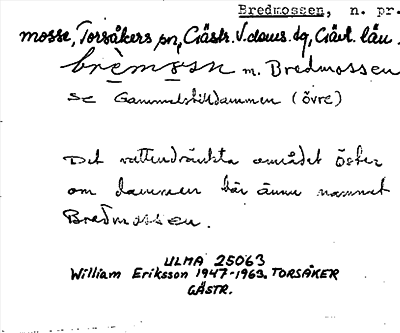 Bredmossen, n. pr.
mosse, Torsåkers sn, Gästr. V. doms. tg, Gävl. län.
brèmo̱sn m. Bredmossen
Se Gammelstilldammen (övre)
Det vattendränkta området öster
om dammen bär ännu namnet
Bredmossen.
ULMA 25063
William Eriksson 1947-1963. TORSÅKER
GÄSTR.